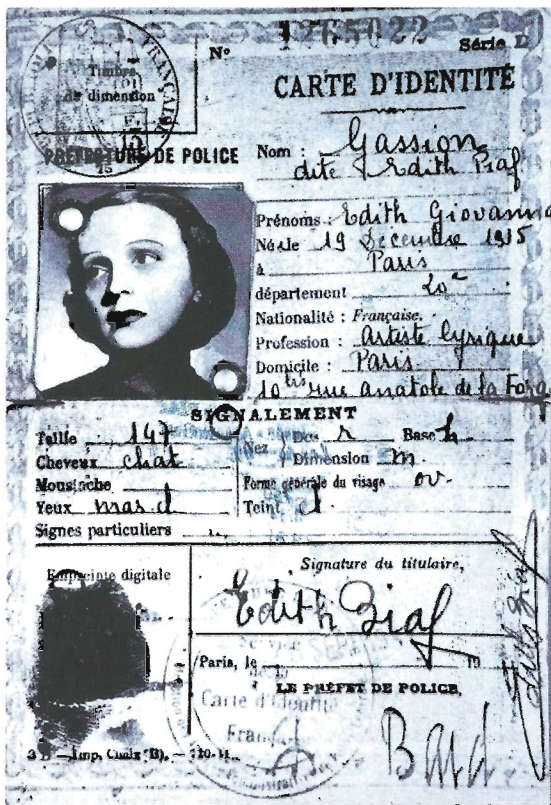 N° 1265022 Série E
Timbre
de dimension
FRANÇAISE
15
CARTE D'IDENTITÉ
PRÉFECTURE DE POLICE
Nom : Gassion
dite Edith Piaf
Prénoms : Edith Giovanna
Née le 19 Décembre 1915
à Paris
département 20e
Nationalité : Française.
Profession : artiste lyrique
Domicile : Paris
rue anatole de la
SIGNALEMENT
Taille 147
Cheveux chat
Moustache
Yeux mar d
Signes particuliers
Nez Dos r Base h
Dimension m.
Forme générale du visage ov.
Teint cl
Empreinte digitale
Signature du titulaire,
Edith Piaf
Edith Piaf
Paris, le 19
LE PRÉFET DE POLICE,
Carte d'Identité
Imp. Chaix (B).